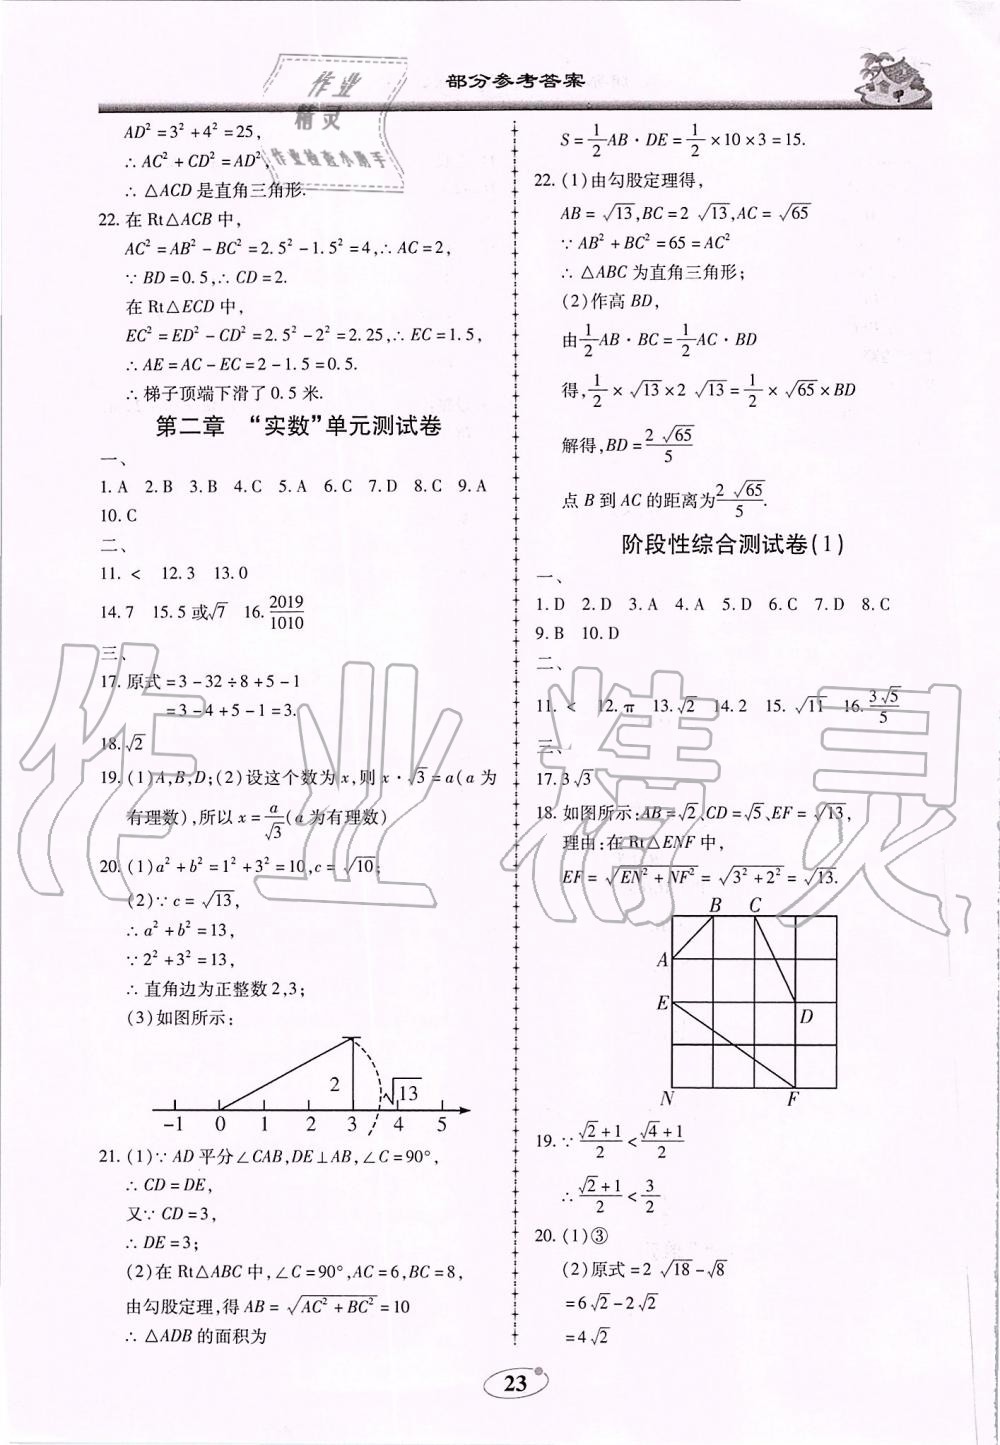 部分参考答案
作业
精灵
作业检查小助手
AD²=3²+4²=25,
∴AC²+CD²=AD²,
∴△ACD是直角三角形.
22.在Rt△ACB中,
AC²=AB²-BC²=2.5²-1.5²=4,∴AC=2,
∵BD=0.5,∴CD=2.
在Rt△ECD中,
EC²=ED²-CD²=2.5²-2²=2.25,∴EC=1.5,
∴AE=AC-EC=2-1.5=0.5.
∴梯子顶端下滑了0.5米.
第二章 “实数”单元测试卷
一、
1.A 2.B 3.B 4.C 5.A 6.C 7.D 8.C 9.A
10.C
二、
11.< 12.3 13.0
14.7 15.5或√7 16.2019/1010
三、
17.原式=3-32÷8+5-1
=3-4+5-1=3.
18.√2
19.(1)A,B,D;(2)设这个数为x,则x·√3=a(a为
有理数),所以x=a/√3(a为有理数)
20.(1)a²+b²=1²+3²=10,c=√10;
(2)∵c=√13,
∴a²+b²=13,
∵2²+3²=13,
∴直角边为正整数2,3;
(3)如图所示:
2 √13
-1 0 1 2 3 4 5
21.(1)∵AD平分∠CAB,DE⊥AB,∠C=90°,
∴CD=DE,
又∵CD=3,
∴DE=3;
(2)在Rt△ABC中,∠C=90°,AC=6,BC=8,
由勾股定理,得AB=√(AC²+BC²)=10
∴△ADB的面积为
S=1/2AB·DE=1/2×10×3=15.
22.(1)由勾股定理得,
AB=√13,BC=2√13,AC=√65
∵AB²+BC²=65=AC²
∴△ABC为直角三角形;
(2)作高BD,
由1/2AB·BC=1/2AC·BD
得,1/2×√13×2√13=1/2×√65×BD
解得,BD=2√65/5
点B到AC的距离为2√65/5.
阶段性综合测试卷(1)
一、
1.D 2.D 3.A 4.A 5.D 6.C 7.D 8.C
9.B 10.D
二、
11.< 12.π 13.√2 14.2 15.√11 16.3√5/5
三、
17.3√3
18.如图所示:AB=√2、CD=√5、EF=√13,
理由:在Rt△ENF中,
EF=√(EN²+NF²)=√(3²+2²)=√13.
B C
A
E
D
N F
19.∵(√2+1)/2<(√4+1)/2
∴(√2+1)/2<3/2
20.(1)③
(2)原式=2√18-√8
=6√2-2√2
=4√2
23
作业精灵